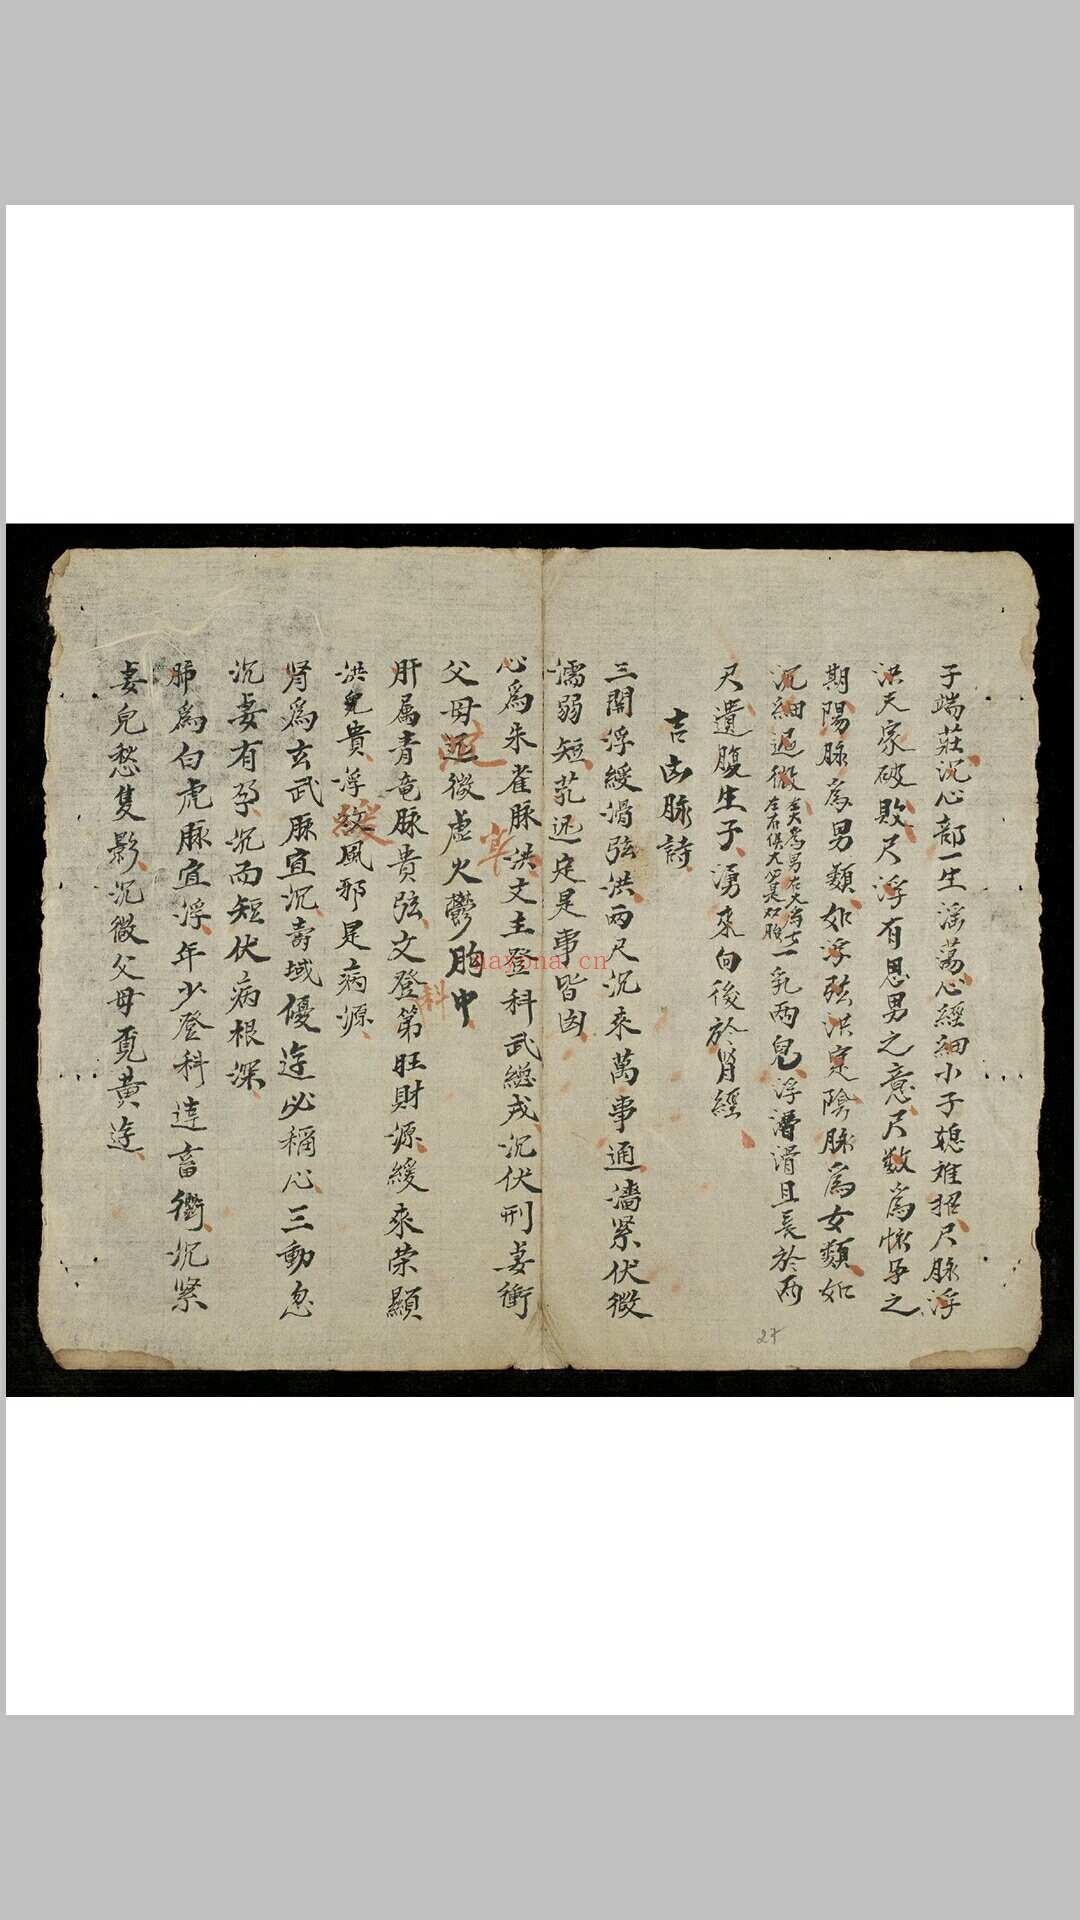 子端莊沉心部一生滛蕩心經細小子媳难招尺脉浮
洪夫家破敗尺浮有思男之意尺数為懷孕之
期陽脉為男類如浮弦洪寔陰脉為女類如
沉細遲微左大為男右大為女左右俱大必是双胎一乳兩兒浮滑且長於兩
尺遺腹生子湧來向後於肾經
吉凶脉詩
三關浮緩滑弦洪兩尺沉來萬事通濇緊伏微
濡弱短芤迟定是事皆凶
心為朱雀脉洪文主登科武總戎沉伏刑妻衝
父母遲微虚火鬱胸中
肝属青竜脉貴弦文登第旺財源緩來荣顯
洪兒貴浮緊風邪是病源
肾為玄武脉宜沉壽域優遊必稱心三動忽
沉妻有孕沉而短伏病根深
肺為白虎脉宜浮年少登科達畜衝沉緊
妻兒愁隻影沉微父母
nayona.cn
科
27